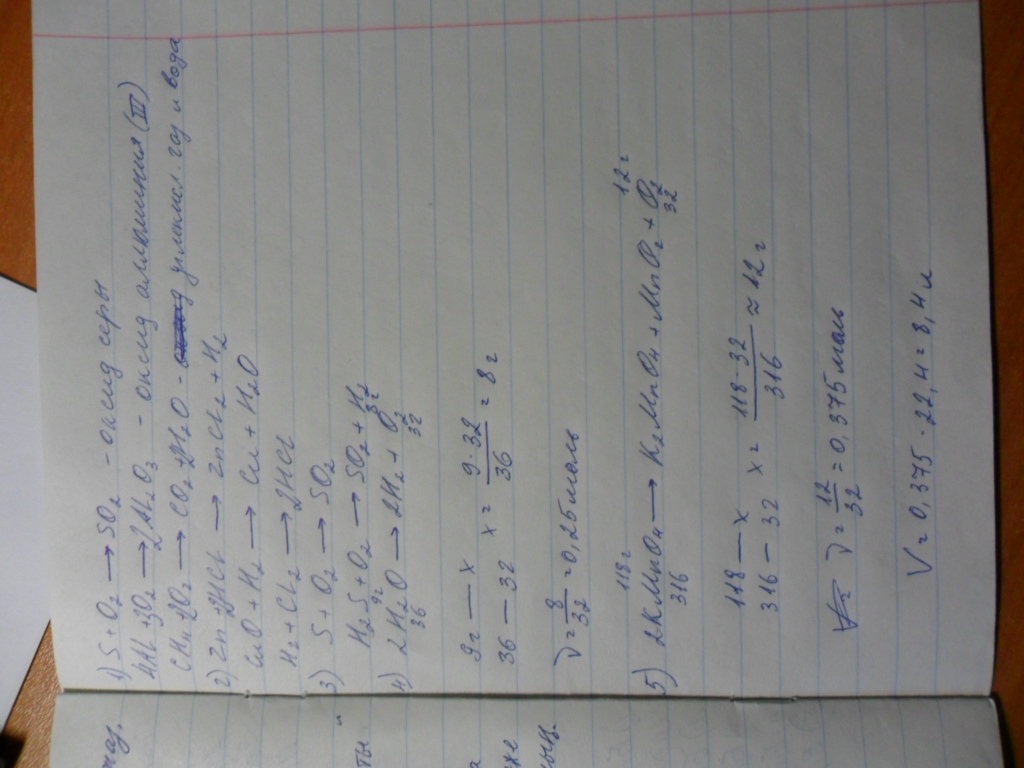 1) S + O₂ → SO₂ - оксид серы
4Al + 3O₂ → 2Al₂O₃ - оксид аллюминия (III)
CH₄ + 2O₂ → CO₂ + 2H₂O - углекисл. газ и вода
2) Zn + 2HCl → ZnCl₂ + H₂
CuO + H₂ → Cu + H₂O
H₂ + Cl₂ → 2HCl
3) S + O₂ → SO₂
H₂S + O₂ → SO₂ + H₂
9г 32
4) 2H₂O → 2H₂ + O₂
36 32
9г — x
36 — 32 x = 9·32/36 = 8г
ν = 8/32 = 0,25моль
118г 12г
5) 2KMnO₄ → K₂MnO₄ + MnO₂ + O₂
316 32
118 — x
316 — 32 x = 118·32/316 ≈ 12г
V= ν = 12/32 = 0,375моль
V = 0,375·22,4 = 8,4л
ты"